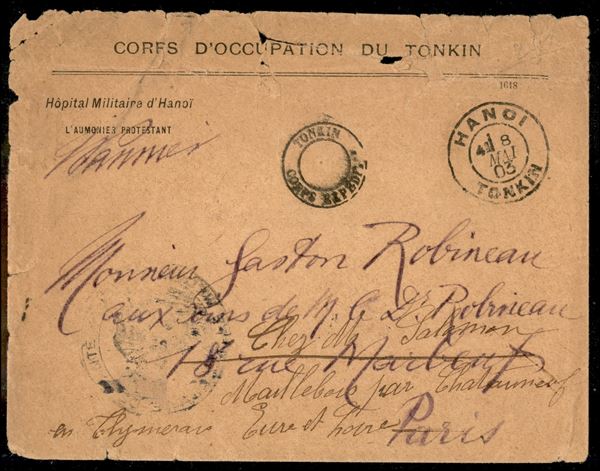 CORPS D'OCCUPATION DU TONKIN
1618
Hôpital Militaire d'Hanoï
L'AUMONIER PROTESTANT
TONKIN
CORPS EXPEDITre
HANOI
8
MAI
03
TONKIN
Monsieur Gaston Robineau
aux soins de M. le Dr Robineau
Chez Mr Salamon
18 rue Marbeuf
Maillebois par Chateauneuf
en Thymerais Eure et Loire Paris